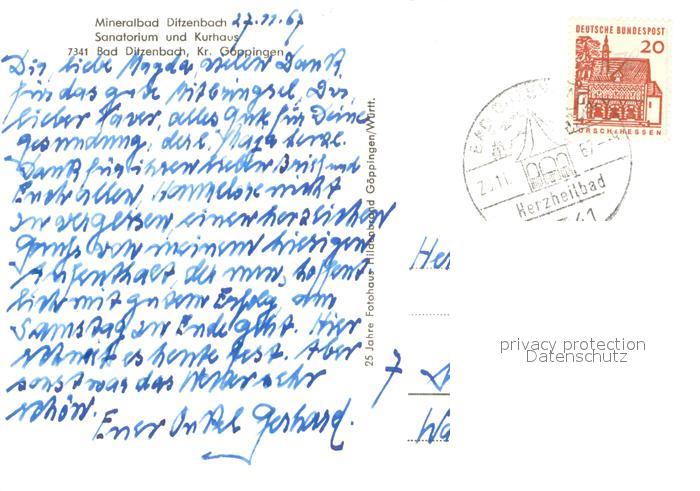 Mineralbad Ditzenbach 27.11.67
Sanatorium und Kurhaus
7341 Bad Ditzenbach, Kr. Göppingen
Dir, liebe Magda, vielen Dank
für das gute Mitbringsel, Dir
lieber Xaver, alles Gute für Deine
Gesundung, der l. Maja herzl.
Dank für ihren lieben Brief und
Euch allen, Hannelore nicht
zu vergessen, einen herzlichen
Gruß von meinem hiesigen
Aufenthalt, der nun, hoffent
lich mit gutem Erfolg, am
Samstag zu Ende geht. Hier
schneit es heute fest. Aber
sonst war das Wetter sehr
schön.
Euer Onkel Gerhard.
25 Jahre Fotohaus Hildenbrand Göppingen/Württ.
DEUTSCHE BUNDESPOST
20
LORSCH/HESSEN
BAD
67
Herzheilbad
7
privacy protection
Datenschutz